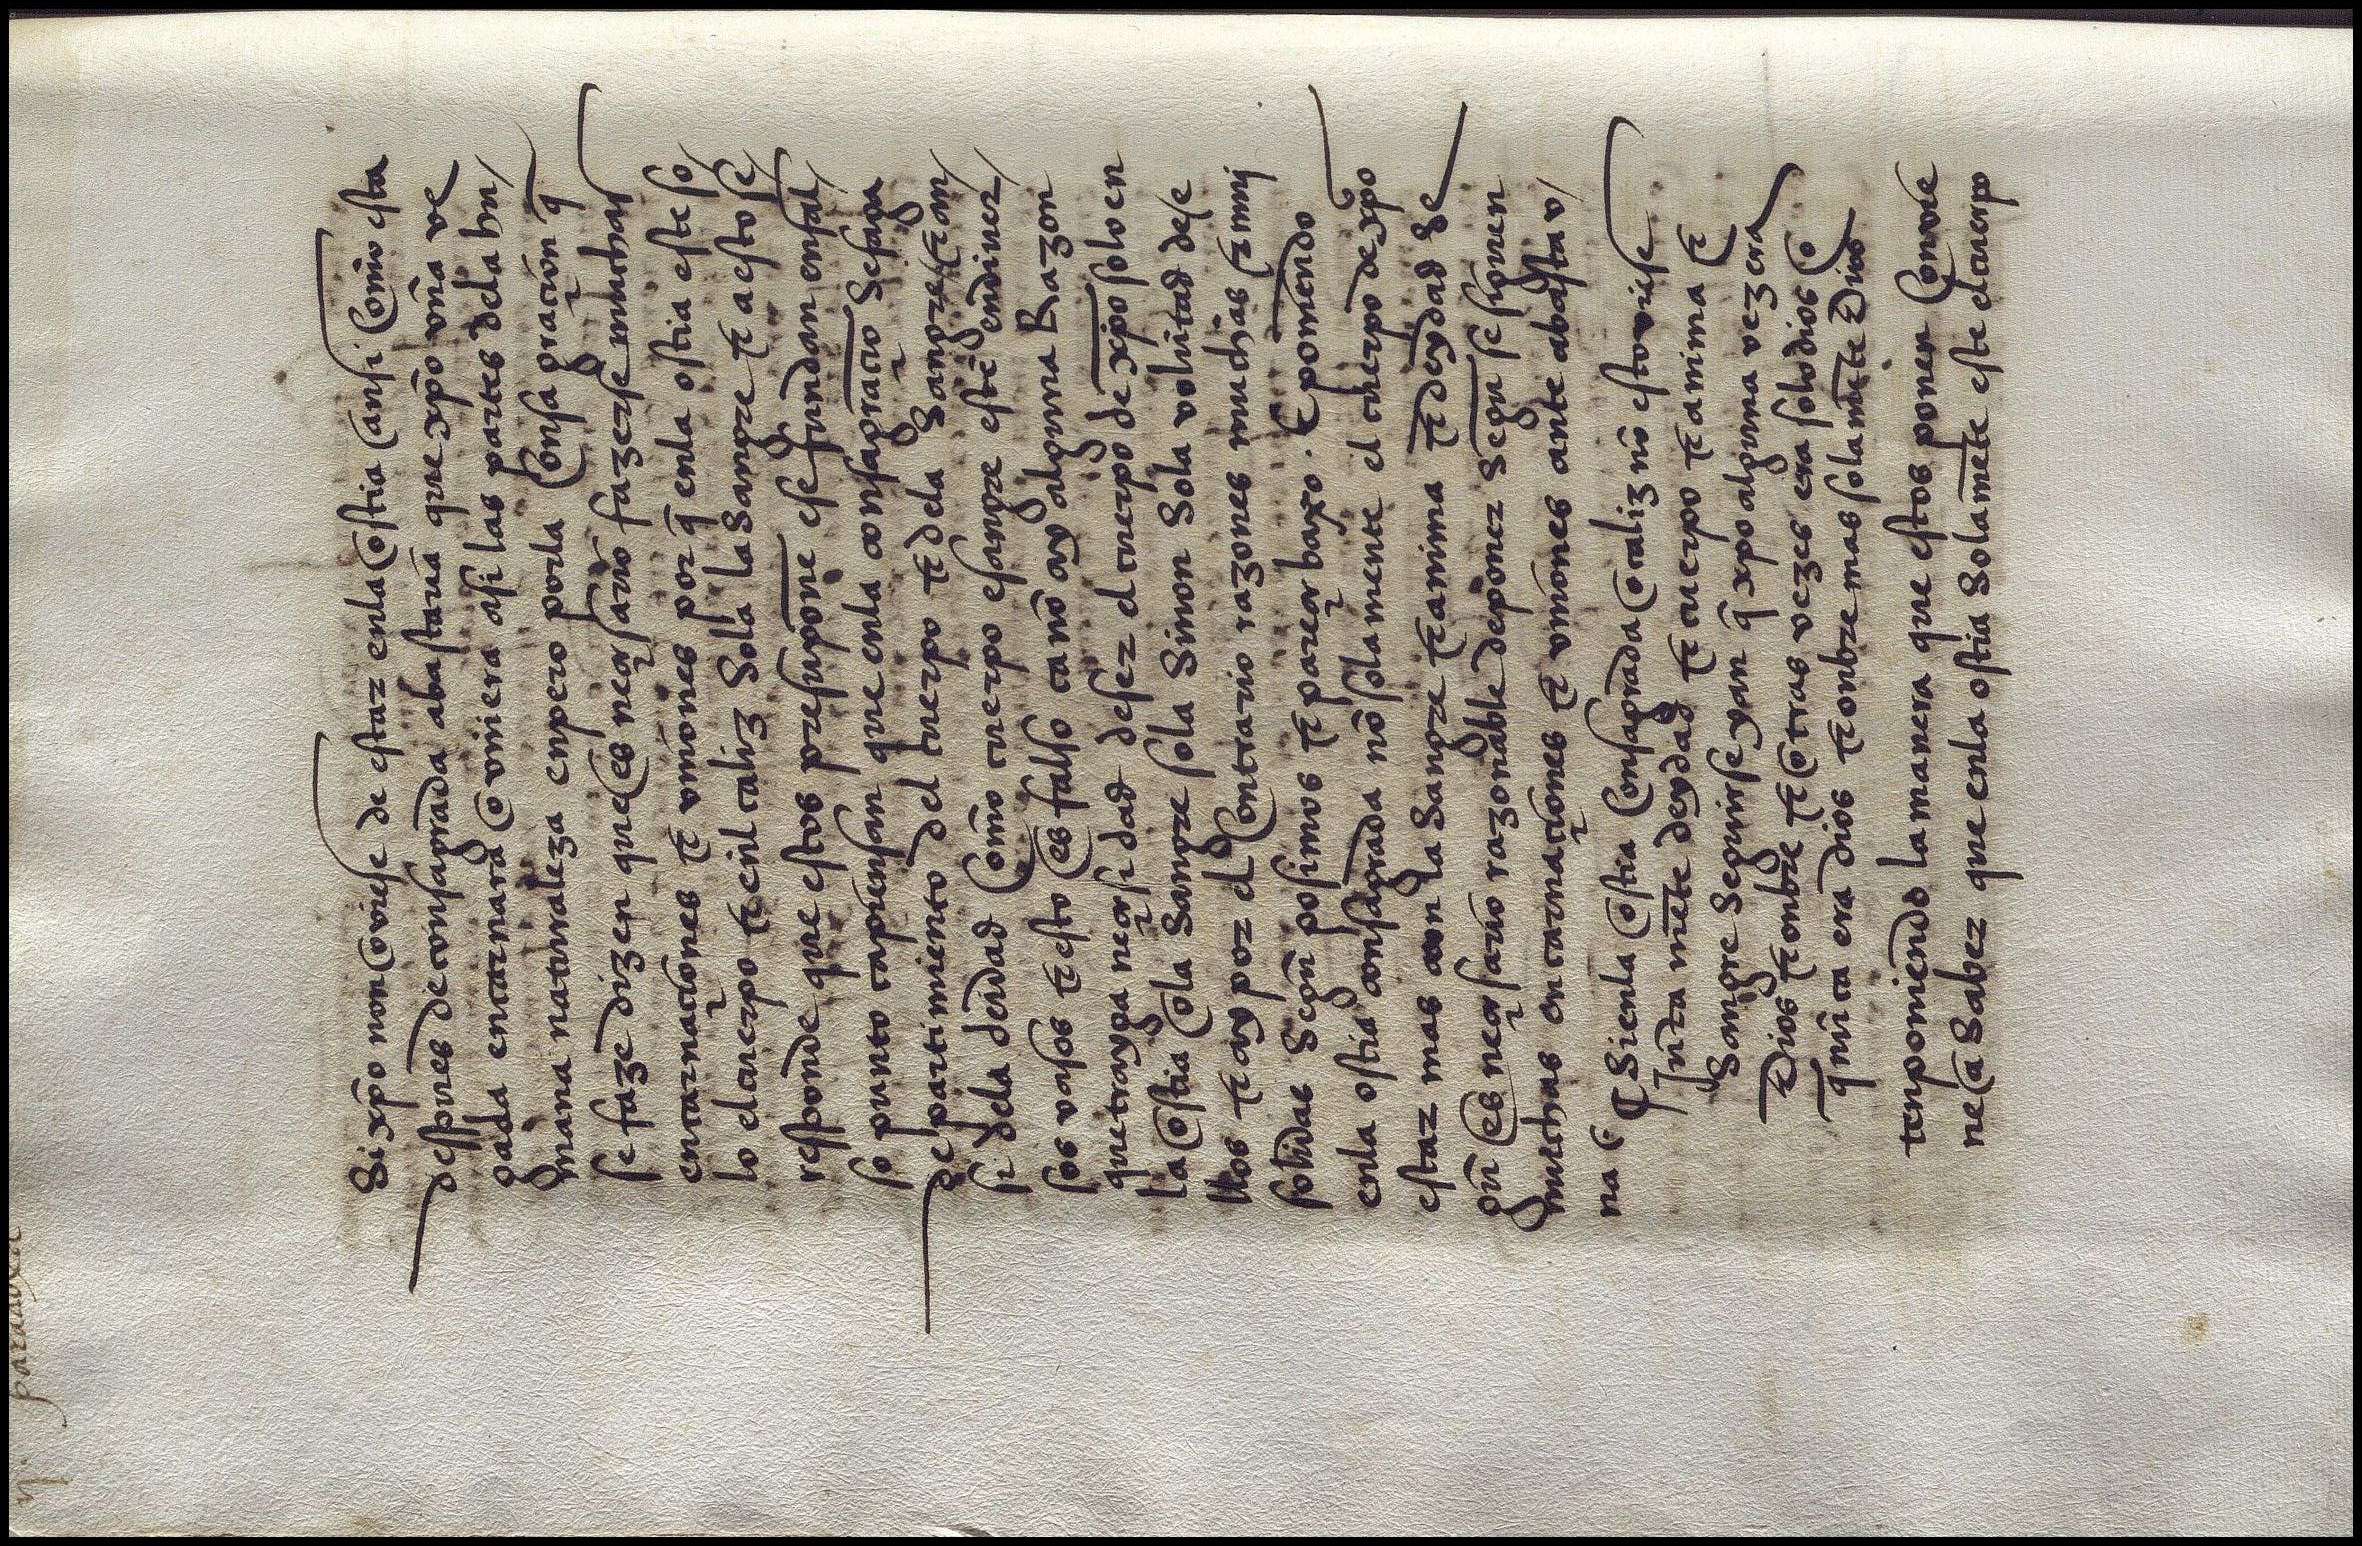 Si xp̄o non oviese de estar enla ostia ansi com̄o esta
despues de consagrada abastaua que xp̄o vn̄a ve
gada encarnara o vniera asi las partes dela hu
mana naturaleza enpero por la consagraçion q̄
se faze dizen que es neçesario fazerse muchas
encarnaçiones τ vniones por q̄ enla ostia este so
lo el cuerpo τ enl caliz sola la sangre τ a esto se
responde que estos presupone ese fundan en fal
so punto ca piensan que enla consagraçio se faga
departimiento del cuerpo τ dela sangre τ an
si dela deidad com̄o cuerpo esangre estē en diuer
sos vasos τ esto es falso ca nō ay alguna Razon
que trayga neçesidad de ser el cuerpo de xp̄o solo en
la ostia o la sangre sola sinon sola volūtad dese
llos τ ay por el contrario razones muchas τ muj
solidas segun̄ posimos τ pareçer baxo. E poniendo
enla ostia consagrada nō solamente el cuerpo de xp̄o
estar mas con la sangre τ anima τ deydad se
gun̄ es neçesario razonable de poner segun se siguen
muchas encarnaçiones τ vniones ante abasta v
na
¶ Si enla ostia consagrada o caliz nō estoviese
Junta mēte deydad τ cuerpo τ anima τ
sangre seguirse yan q̄ xp̄o alguna vez era
Dios τ onbre τ otras vezes era solo dios o
q̄ nūca era dios τ onbre mas solamēte Dios
tenponiendo la manera que estos ponen convie
ne a saber que enla ostia solamēte este el cuerpo